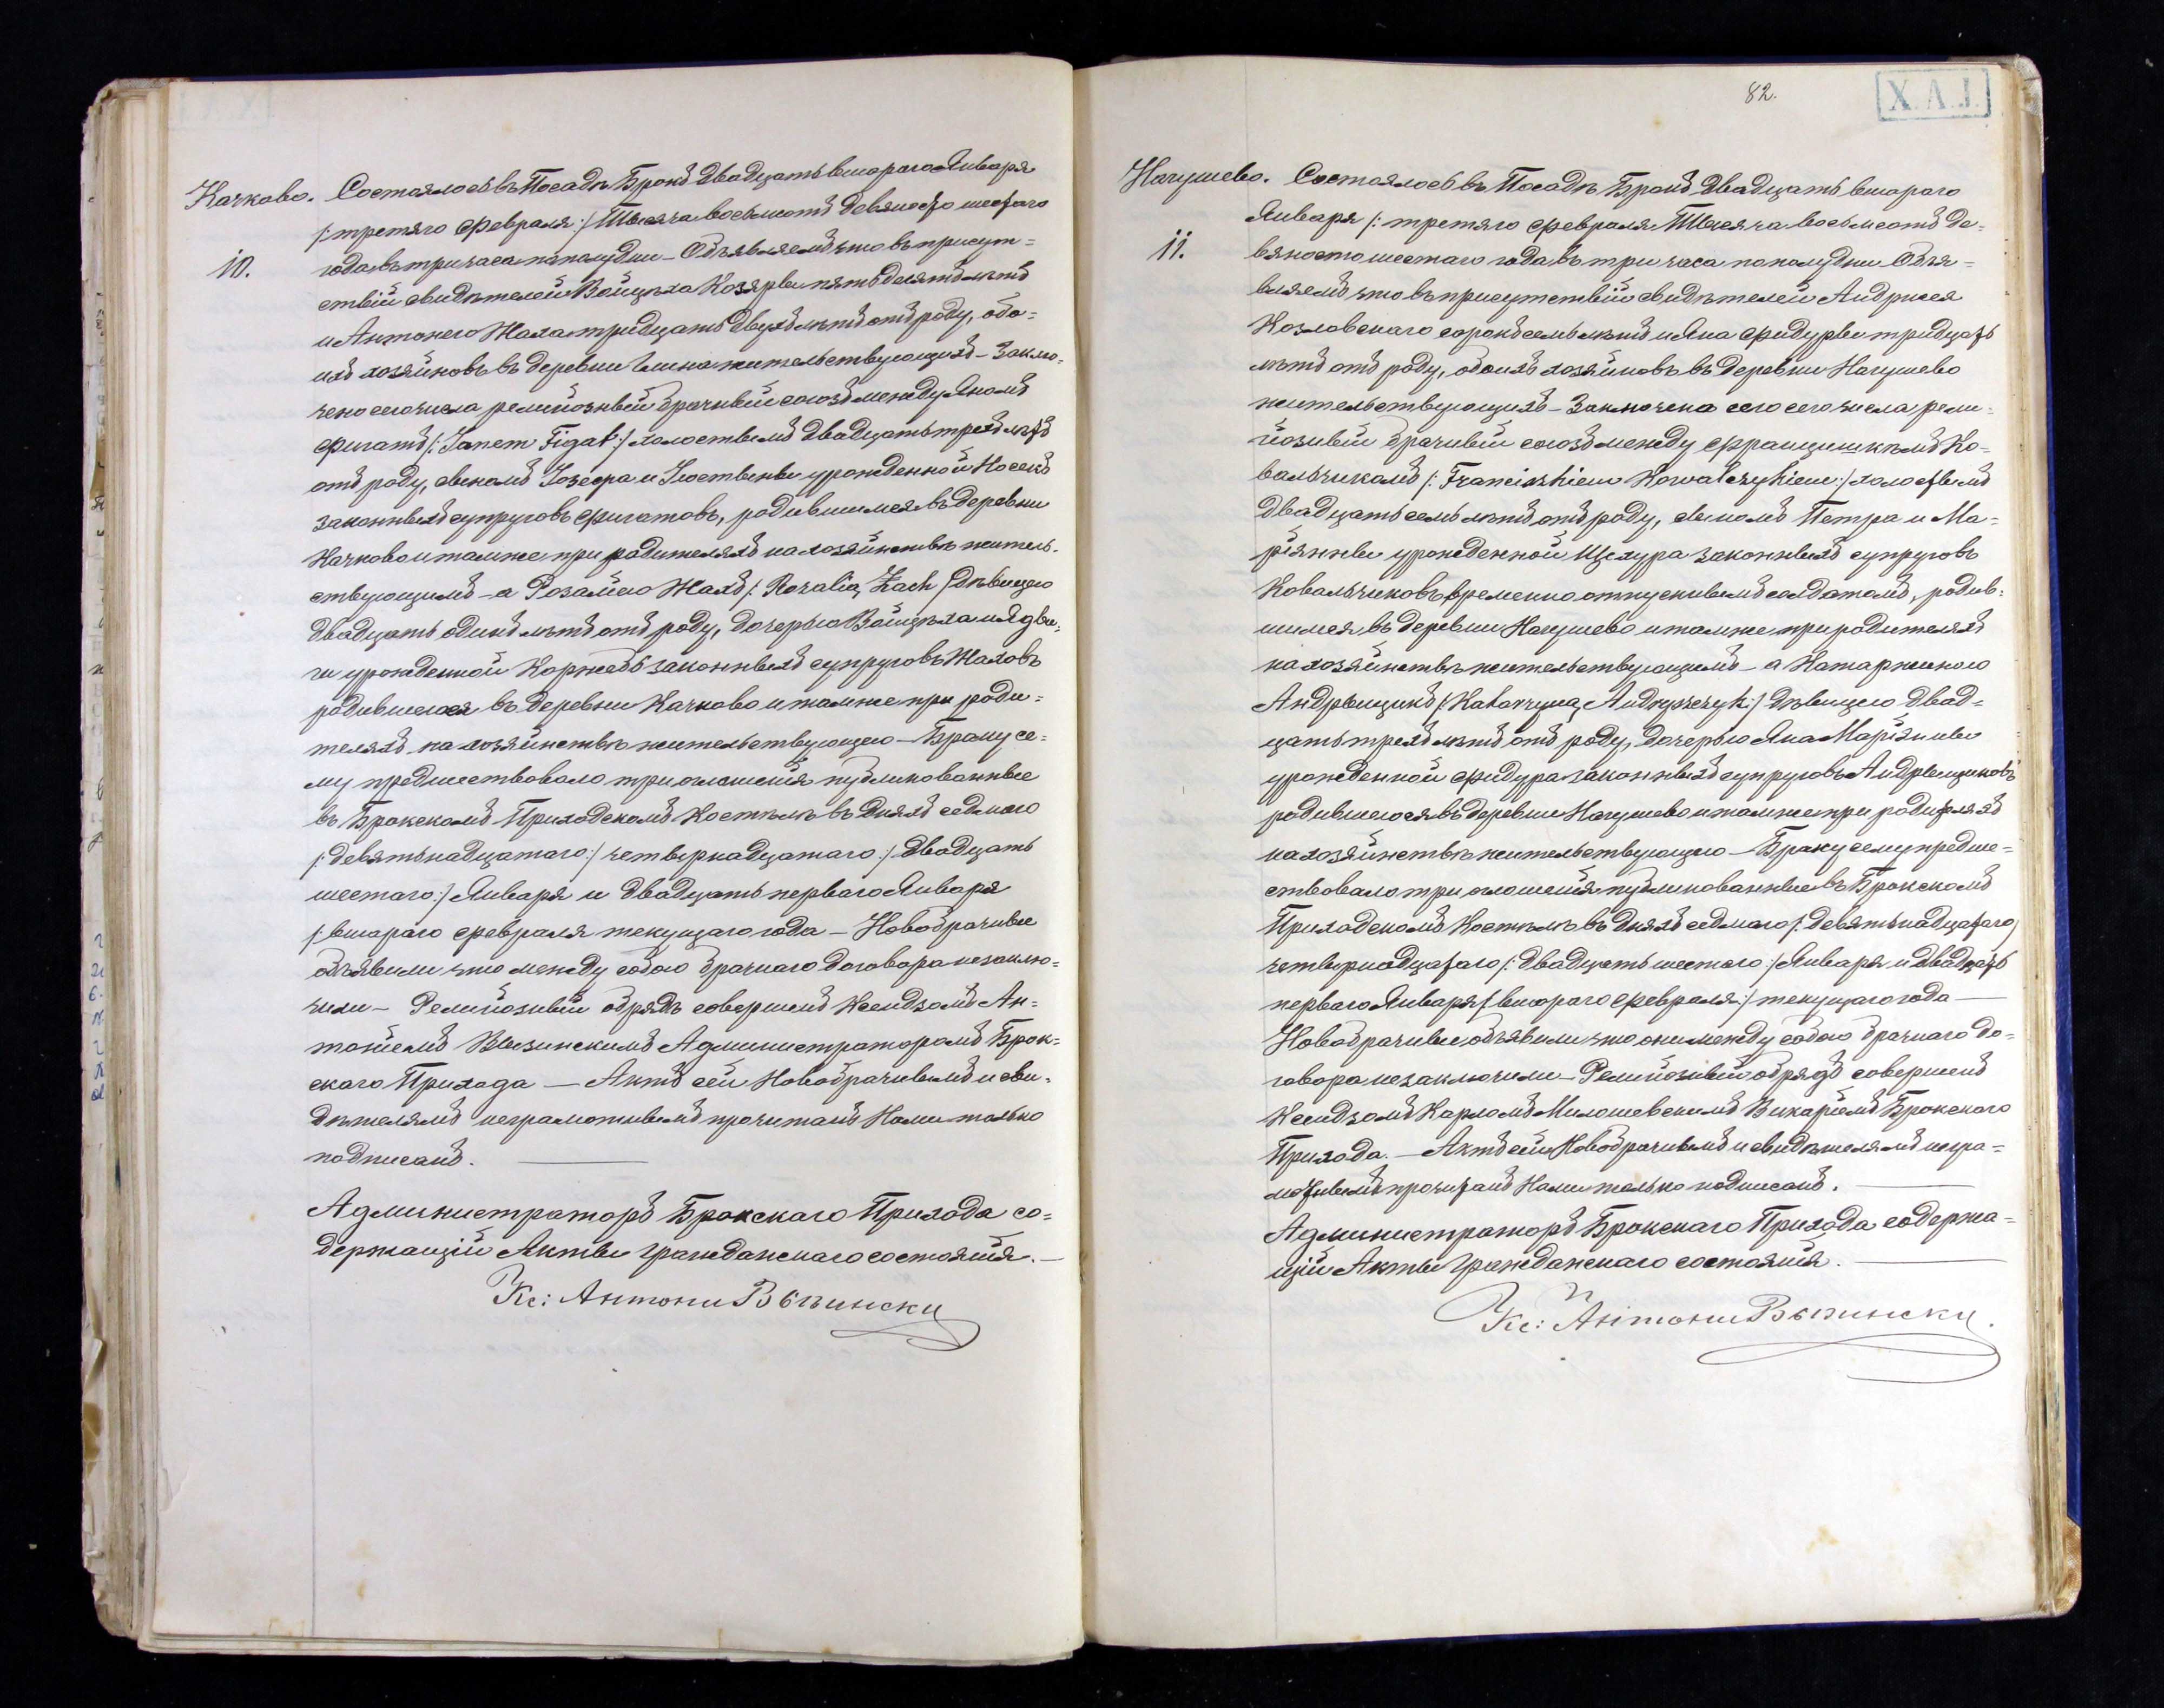 Качково. Состоялось въ Посадѣ Брокъ двадцать втораго Января
/: третяго Февраля :/ Тысяча восемьсотъ девяносто шестаго
10. года въ три часа по полудни – Объявляемъ что въ присут=
ствіи свидѣтелей Войцѣха Козярвы пятьдесятъ лѣтъ
и Антонего Жаха тридцать двухъ лѣтъ отъ роду, обо=
ихъ хозяиновъ въ деревни жительствующихъ – Заклю=
чено сего числа религіозный брачный союзъ между Яномъ
Фигатъ /: Janem Figat :/ холостымъ двадцать трехъ лѣтъ
отъ роду, сыномъ Іозефа и Юстыны урожденной Носекъ
законныхъ супруговъ Фигатовъ, родившимся въ деревни
Качково и тамже при родителяхъ на хозяйствѣ житель=
ствующимъ – а Розаліею Жахъ /: Rozalią Żach / дѣвицею
двадцать одинъ лѣтъ отъ роду, дочерью Войцѣха и Ядви=
ги урожденной Коржебъ законныхъ супруговъ Жаховъ
родившеюся въ деревни Качково и тамже при роди=
теляхъ на хозяйствѣ жительствующею – Браку се=
му предшествовало три оглашенія публикованные
въ Брокскомъ Приходскомъ Костѣлѣ въ дняхъ седмаго
/: девятьнадцатаго :/ четырнадцатаго :/ двадцать
шестаго :/ Января и двадцать перваго Января
/: втораго Февраля текущаго года – Новобрачные
объявили что между собою брачнаго договора незаклю=
чили – Религіозный обрядъ совершенъ Ксендзомъ Ан=
тоніемъ Вызинскимъ Администраторомъ Брок=
скаго Прихода — Актъ сей Новобрачнымъ и сви=
дѣтелямъ неграмотнымъ прочитанъ Нами только
подписанъ. —
Администраторъ Брокскаго Прихода со=
держащій Акты гражданскаго состоянія. —
Кс: Антони Вызински
82.
X.A.J.
Нагушево. Состоялось въ Посадѣ Брокъ двадцать втораго
Января /: третяго Февраля Тысяча восемьсотъ де=
11. вяносто шестаго года въ три часа по полудни Объя=
вляемъ что въ присутствіи свидѣтелей Андржея
Козловскаго сорокъ семь лѣтъ и Яна Фидуры тридцать
лѣтъ отъ роду, обоихъ хозяиновъ въ деревни Нагушево
жительствующихъ – Заключено сего сего числа рели=
гіозный брачный союзъ между Францишкѣмъ Ко=
вальчикомъ /: Franciszkiem Kowalczykiem :/ холостымъ
двадцать семь лѣтъ отъ роду, сыномъ Петра и Ма=
ріянны урожденной Щехура законныхъ супруговъ
Ковальчиковъ, временно отпускнымъ солдатомъ, родив=
шимся въ деревни Нагушево и тамже при родителяхъ
на хозяйствѣ жительствующимъ – а Катаржиною
Андрыщикъ /: Katarzyną Andryszczyk :/ дѣвицею двад=
цать трехъ лѣтъ отъ роду, дочерью Яна Маріянны
урожденной Фидура законныхъ супруговъ Андрыщиковъ
родившеюся въ деревни Нагушево и тамже при родителяхъ
на хозяйствѣ жительствующею – Браку сему предше=
ствовало три оглошенія публикованные въ Брокскомъ
Приходскомъ Костѣлѣ въ дняхъ седмаго /: девятьнадцатаго /
четырнадцатаго /: двадцать шестаго :/ Января и двадцать
перваго Января /: втораго Февраля :/ текущаго года —
Новобрачные объявили что они между собою брачнаго до=
говора незаключили – Религіозный обрядъ совершенъ
Ксендзомъ Карломъ Милошевскимъ Викаріемъ Брокскаго
Прихода. – Актъ сей Новобрачнымъ и свидѣтелямъ негра=
мотнымъ прочитанъ Нами только подписанъ. —
Администраторъ Брокскаго Прихода содержа=
щій Акты гражданскаго состоянія. —
Кс: Антони Вызински.